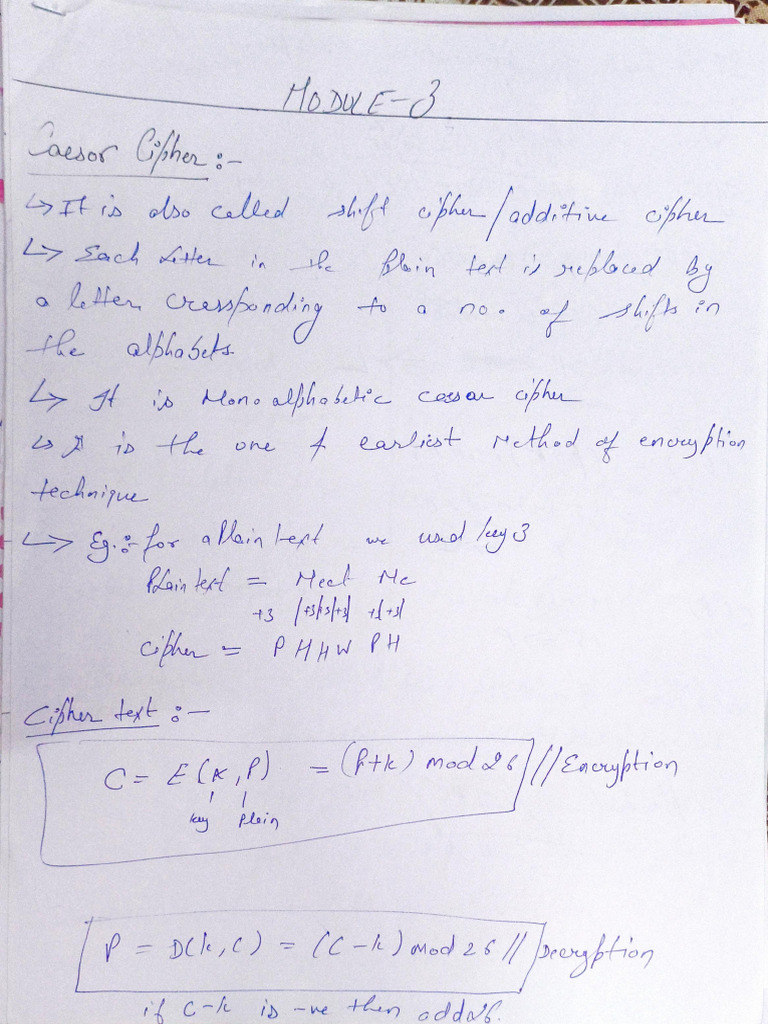 MODULE-3
Caesor Cipher :-
↳ It is also called shift cipher/additive cipher
↳ Each letter in the plain text is replaced by
a letter crossponding to a no. of shifts in
the alphabets.
↳ It is Monoalphabetic caesar cipher
↳ It is the one of earliest Method of encryption
technique
↳ Eg.:- for a Plain text we used key 3
Plain text = Meet Me
+3 |+3|+3|+3| +3|+3|
cipher = P H H W P H
Cipher text :-
C = E(K,P) = (P+k) mod 26 // Encryption
key plain
P = D(k,C) = (C-k) mod 26 // Decryption
if C-k is -ve then add 26.